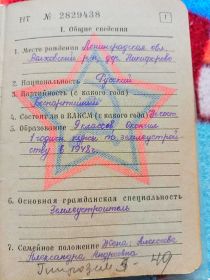 НТ № 2829438
1
I. Общие сведения
1. Место рождения Ленинградская обл.
Волховский р-н дер. Никифорово
2. Национальность Русский
3. Партийность (с какого года)
Беспартийный
4. Состоит ли в ВЛКСМ (с какого года)
5. Образование 9 классов окончил
1 годичн курсы по землеустрой
ству в 1948 г.
6. Основная гражданская специальность
Землеустроитель
7. Семейное положение Жена: Алексеева
Александра Андреевна